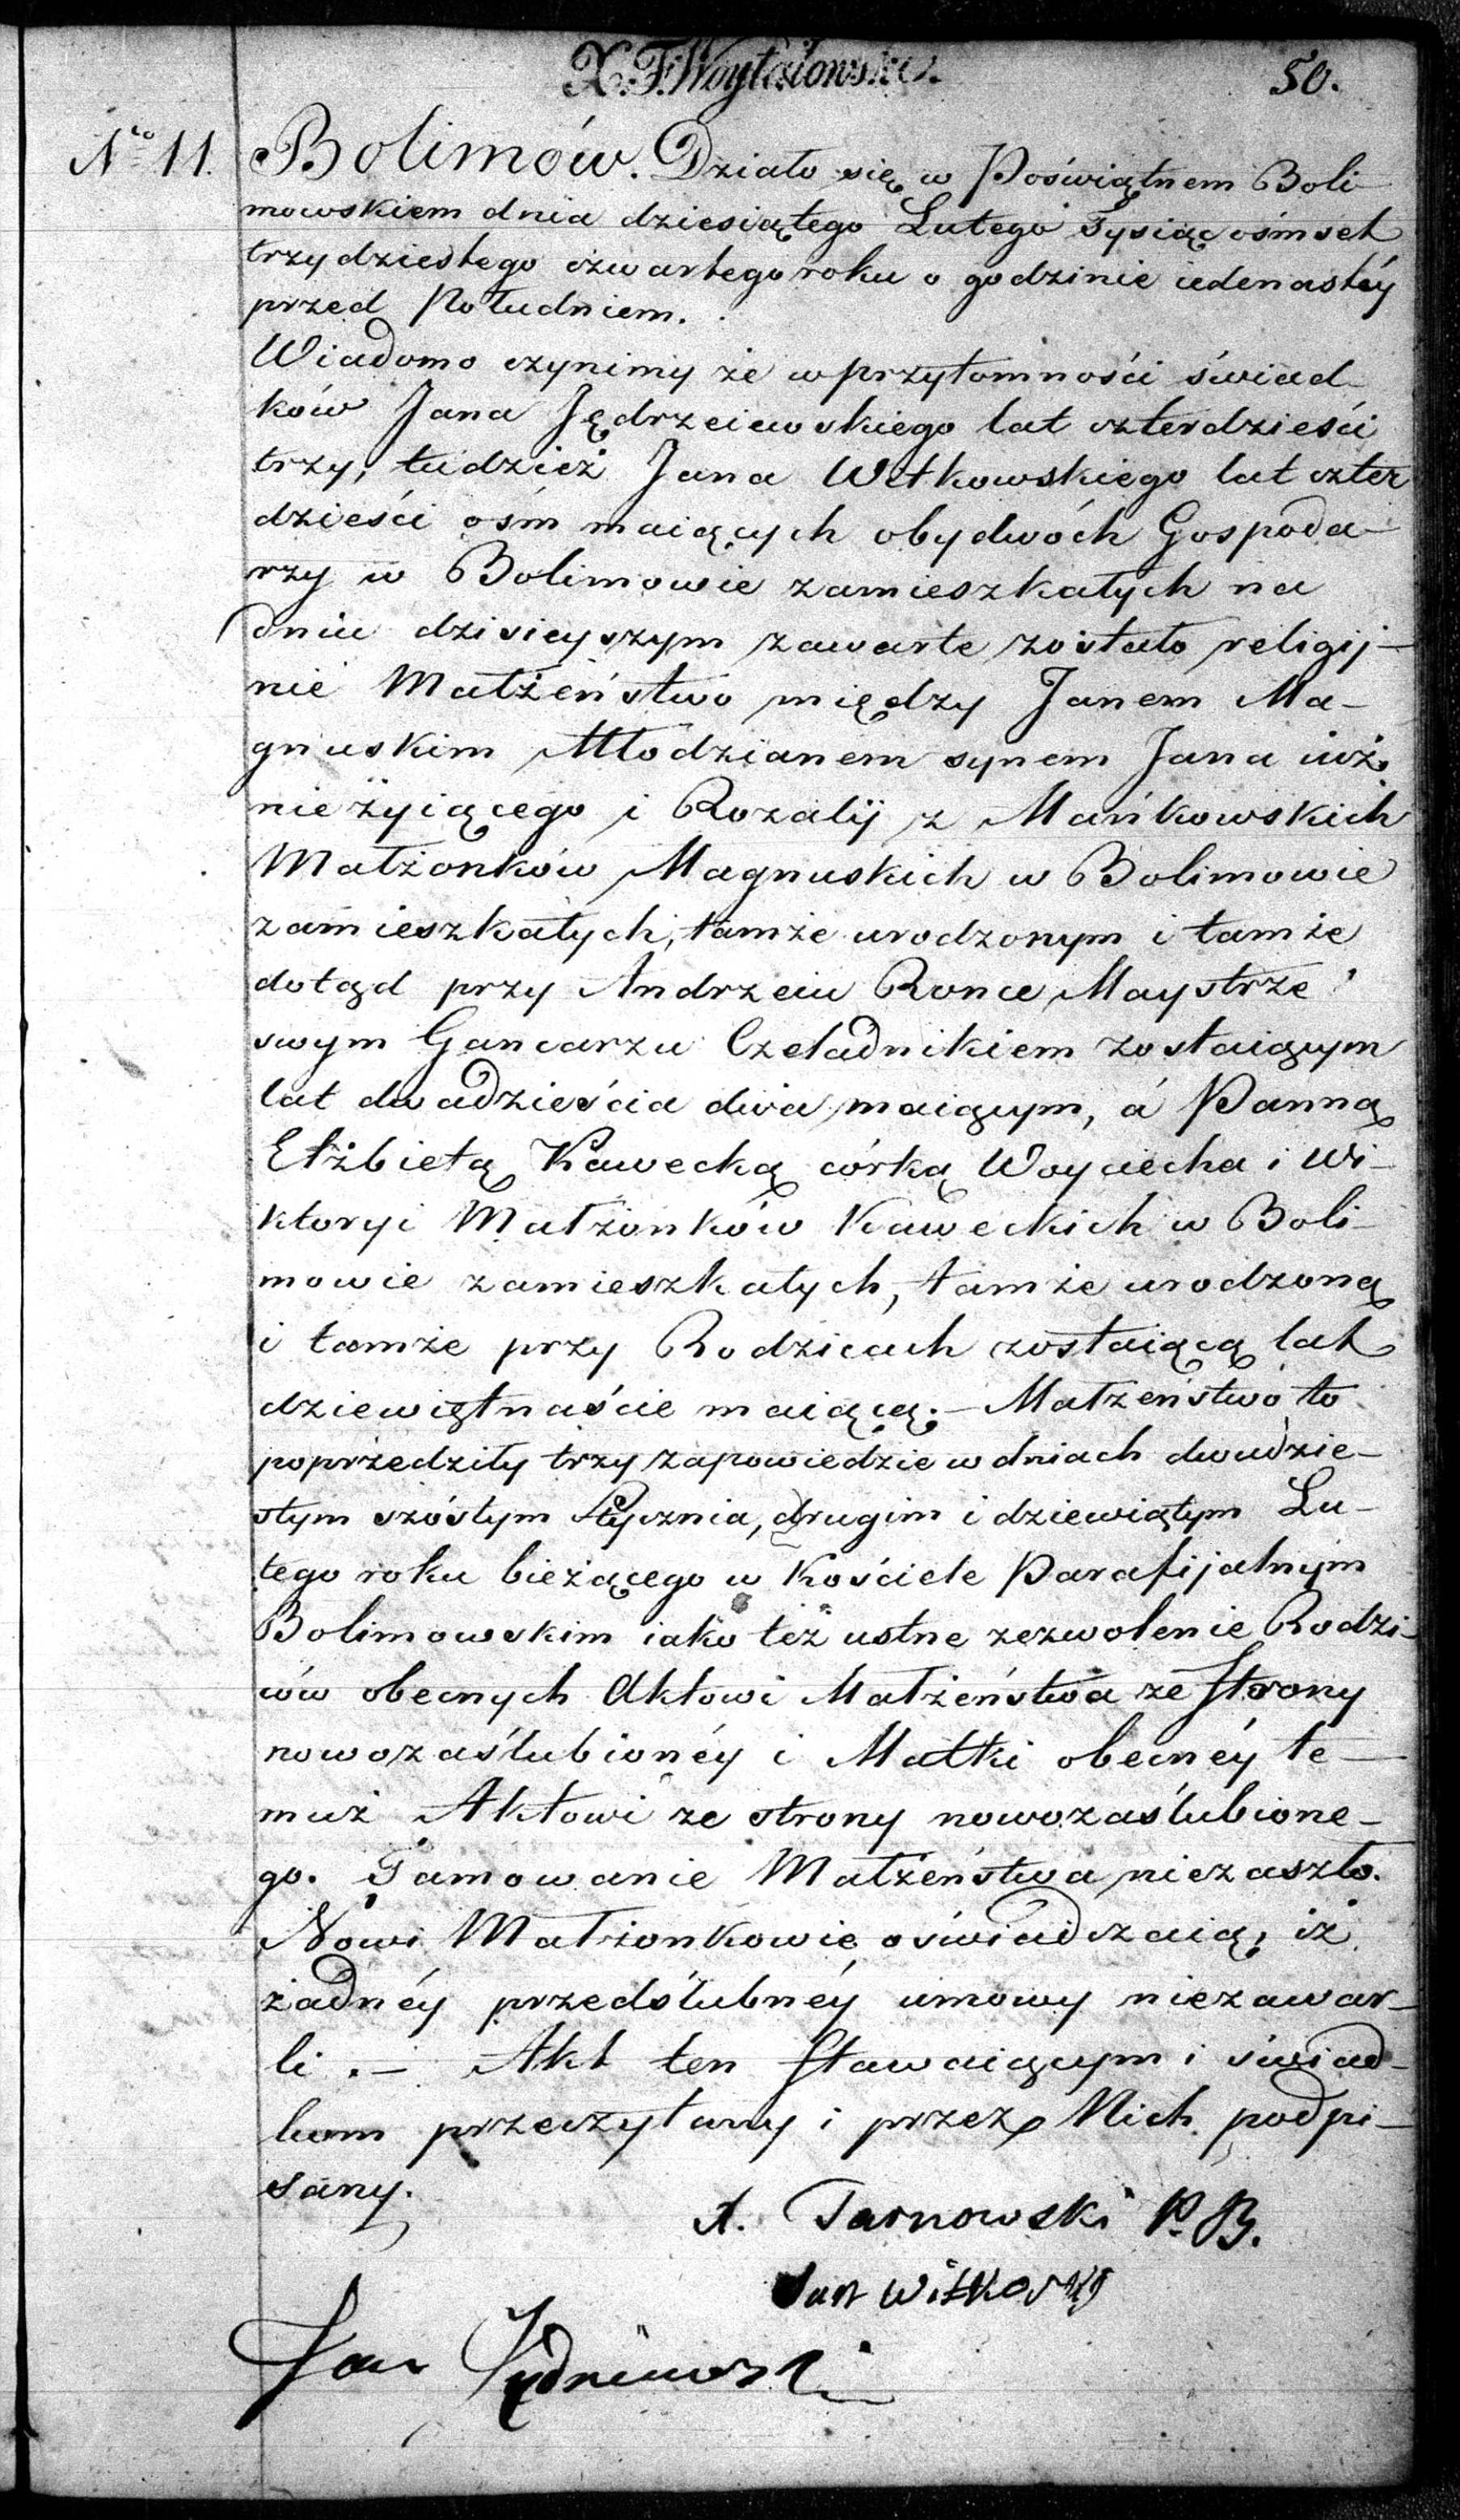 X. F. Woytalowski. 50.
No 11. Bolimów. Działo się w Poświątnem Boli
mowskiem dnia dziesiątego Lutego Tysiąc ośmset
trzydziestego czwartego roku o godzinie iedenastéy
przed Południem.
Wiadomo czynimy że w przytomności świad-
ków Jana Jędrzeiewskiego lat czterdzieści
trzy, tudzież Jana Witkowskiego lat czter
dzieści ośm maiących obydwóch Gospoda-
rzy w Bolimowie zamieszkałych na
dniu dzisieyszym zawarte zostało religij-
nie Małżeństwo między Janem Ma-
gnuskim Młodzianem synem Jana iuż
nieżyiącego i Rozalij z Mańkowskich
Małżonków Magnuskich w Bolimowie
zamieszkałych, tamże urodzonym i tamże
dotąd przy Andrzeiu Ronce Maystrze
swym Gancarzu Czeladnikiem zostaiącym
lat dwadzieścia dwa maiącym, á Panną
Elżbietą Kawecką córką Woyciecha i Wi-
ktoryi Małżonków Kaweckich w Boli-
mowie zamieszkałych, tamże urodzoną
i tamże przy Rodzicach zostaiącą lat
dziewiętnaście maiącą. - Małżeństwo to
poprzedziły trzy zapowiedzie w dniach dwudzie-
stym szóstym Stycznia, drugim i dziewiątym Lu-
tego roku bieżącego w Kościele Parafijalnym
Bolimowskim iako też ustne zezwolenie Rodzi-
ców obecnych Aktowi Małżeństwa ze strony
nowozaślubionéy i Matki obecnéy te-
muż Aktowi ze strony nowozaślubione-
go. Tamowanie Małżeństwa niezaszło.
Nowi Małżonkowie oświadczaią, iż
żadnéy przedślubnéy umowy niezawar-
li. - Akt ten stawaiącym i świad-
kom przeczytany i przez Nich podpi-
sany.
A. Tarnowski P. B.
Jan Witkowski
Jan Jędrzeiewski